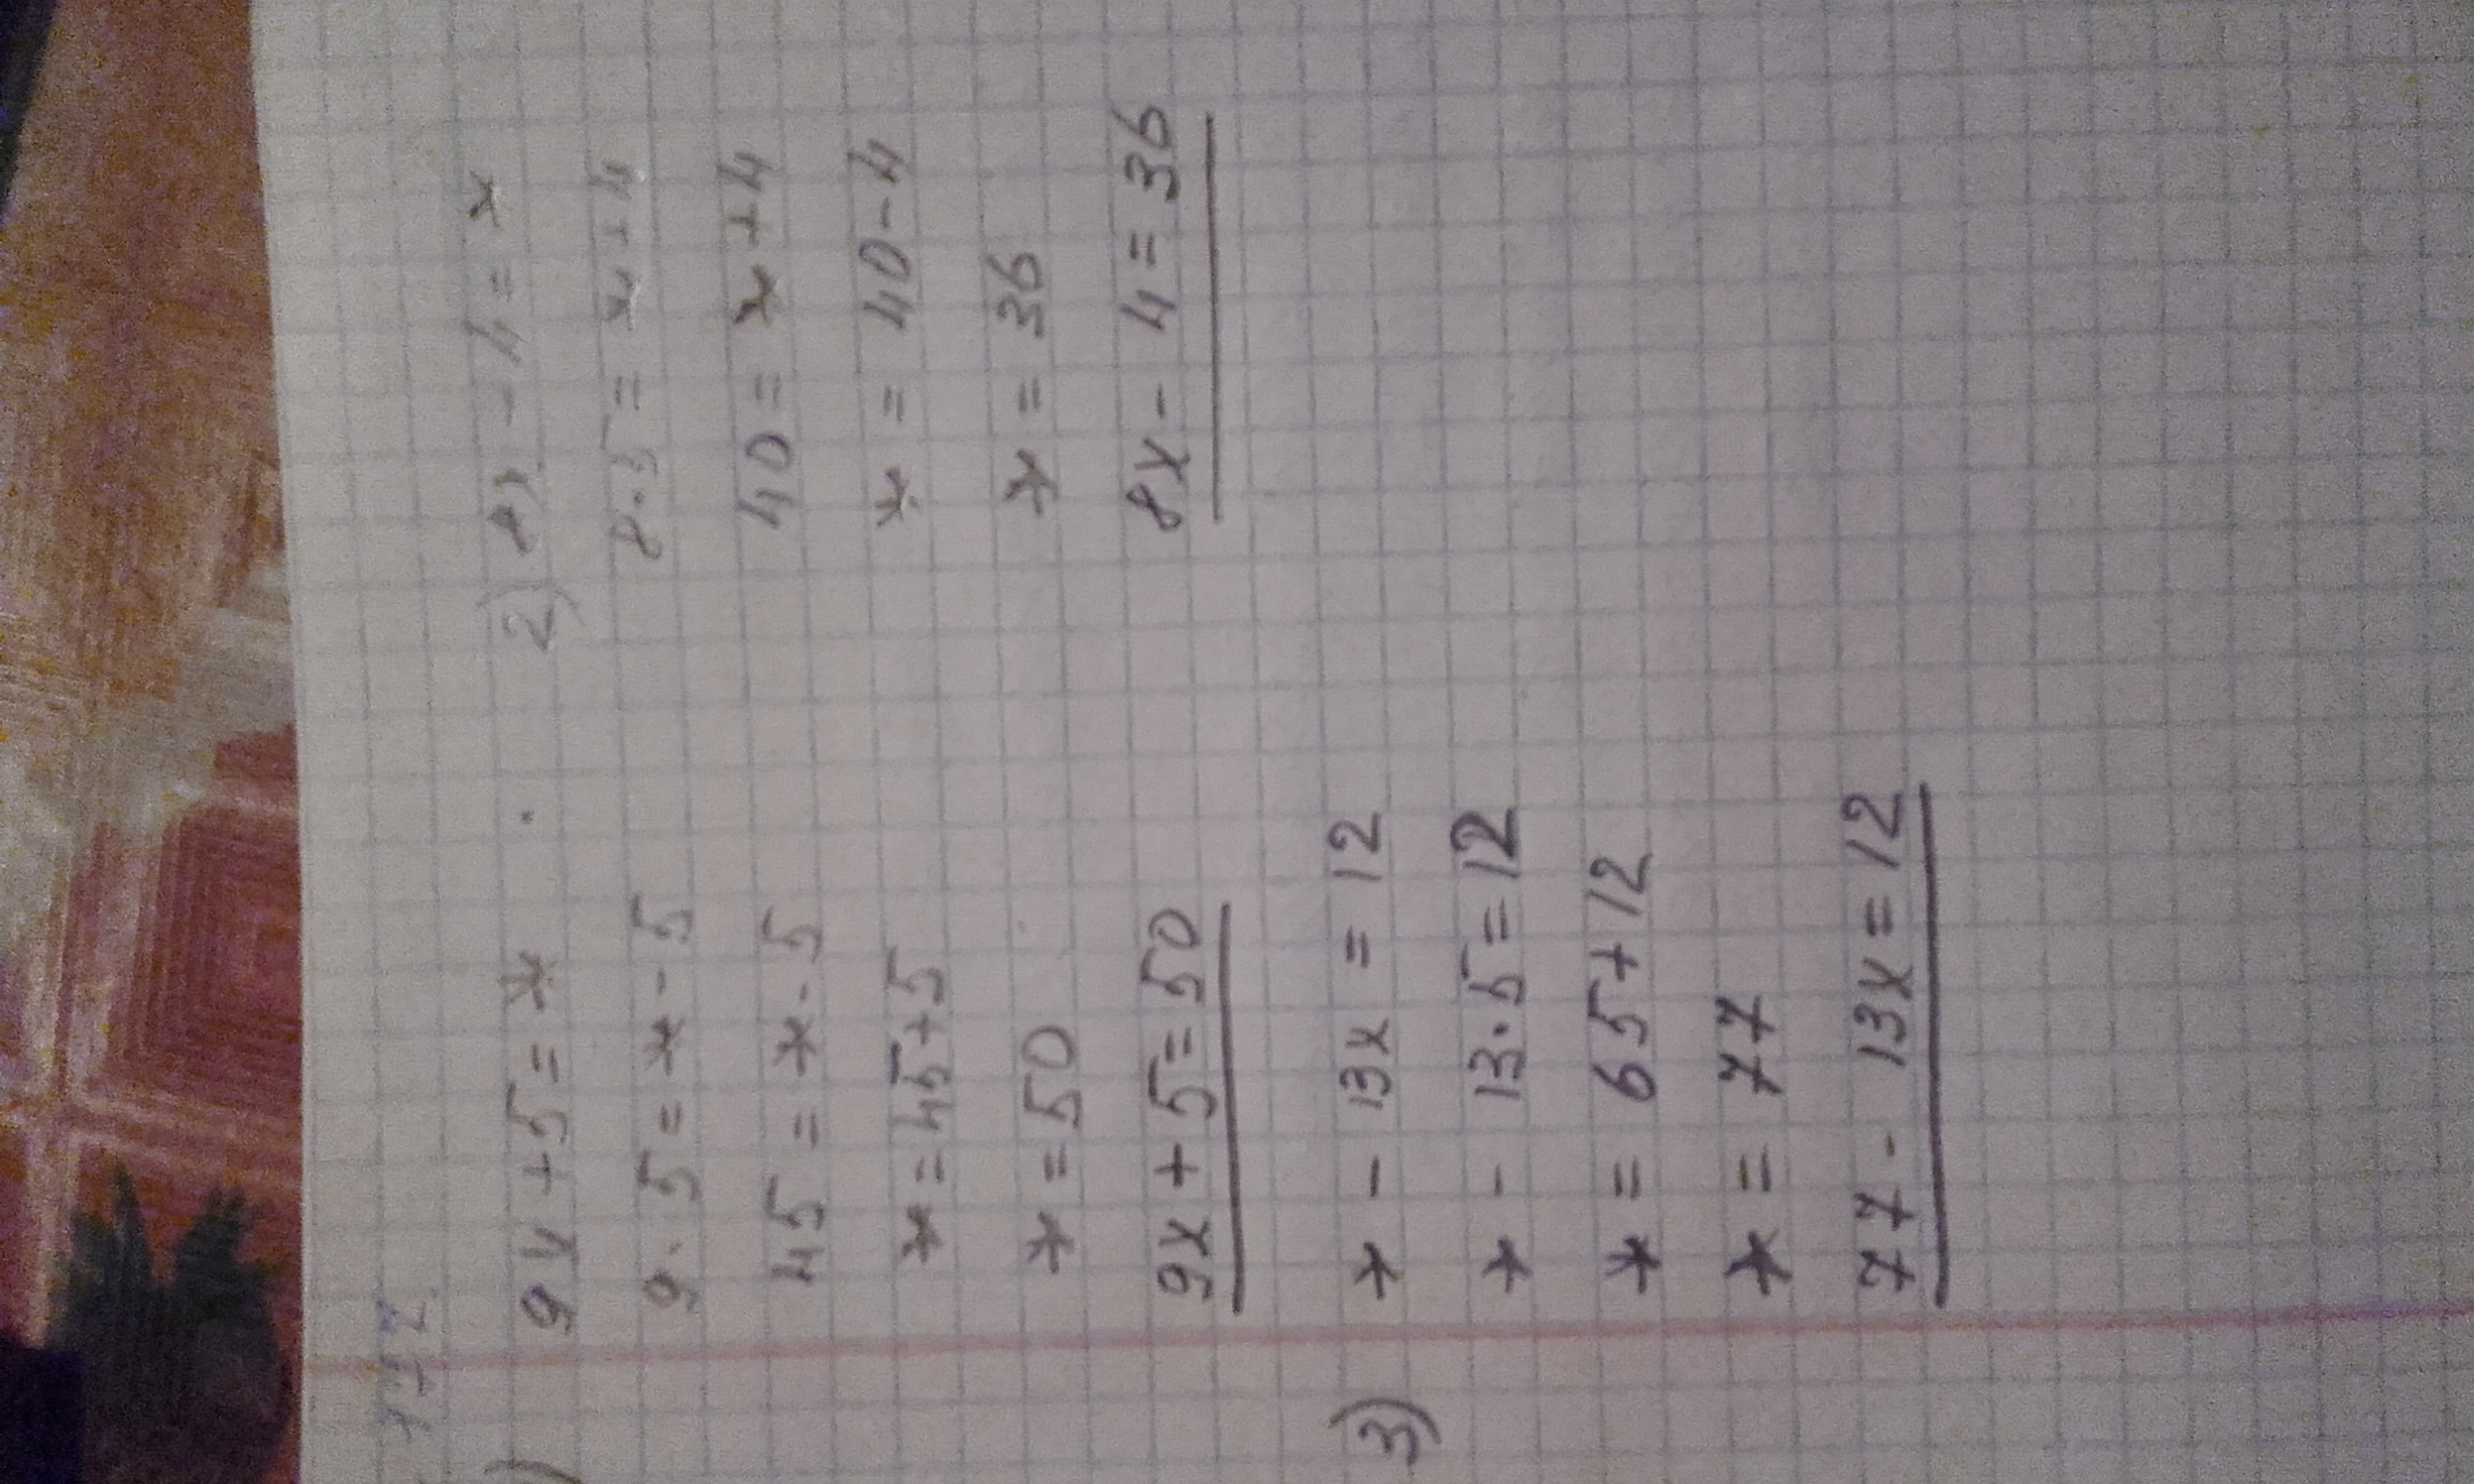 )
9x + 5 = *
9 · 5 = * - 5
45 = * - 5
* = 45 + 5
* = 50
9x + 5 = 50
2) 8x - 4 = *
8 · 5 = * + 4
40 = * + 4
* = 40 - 4
* = 36
8x - 4 = 36
3) * - 13x = 12
* - 13 · 5 = 12
* = 65 + 12
* = 77
77 - 13x = 12